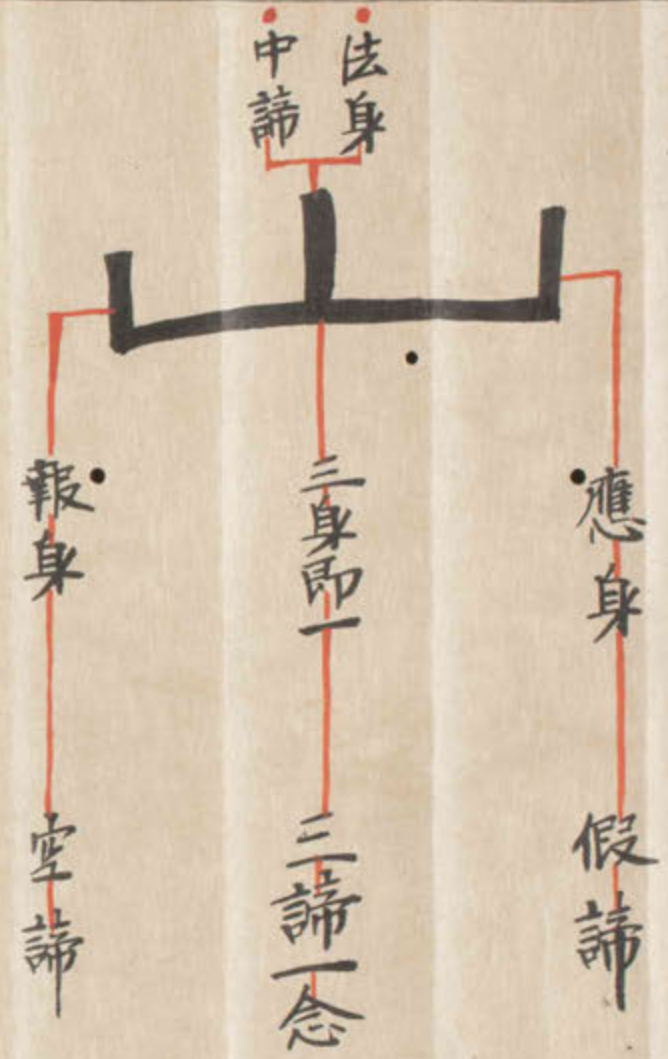 法身
中諦
應身
假諦
三身即一
三諦一念
報身
空諦